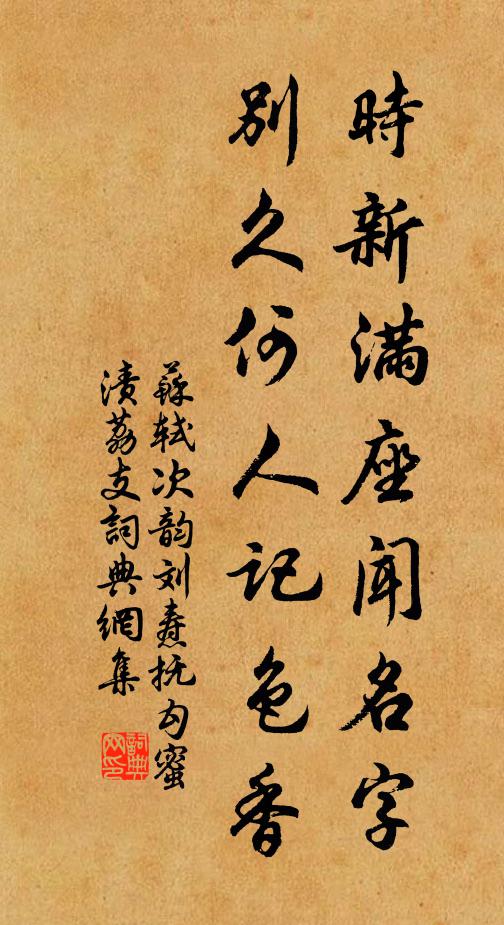 時新滿座聞名字
別久何人記色香
蘇軾次韵刘焘抚勾蜜
漬荔支詞典網集
詞典網印